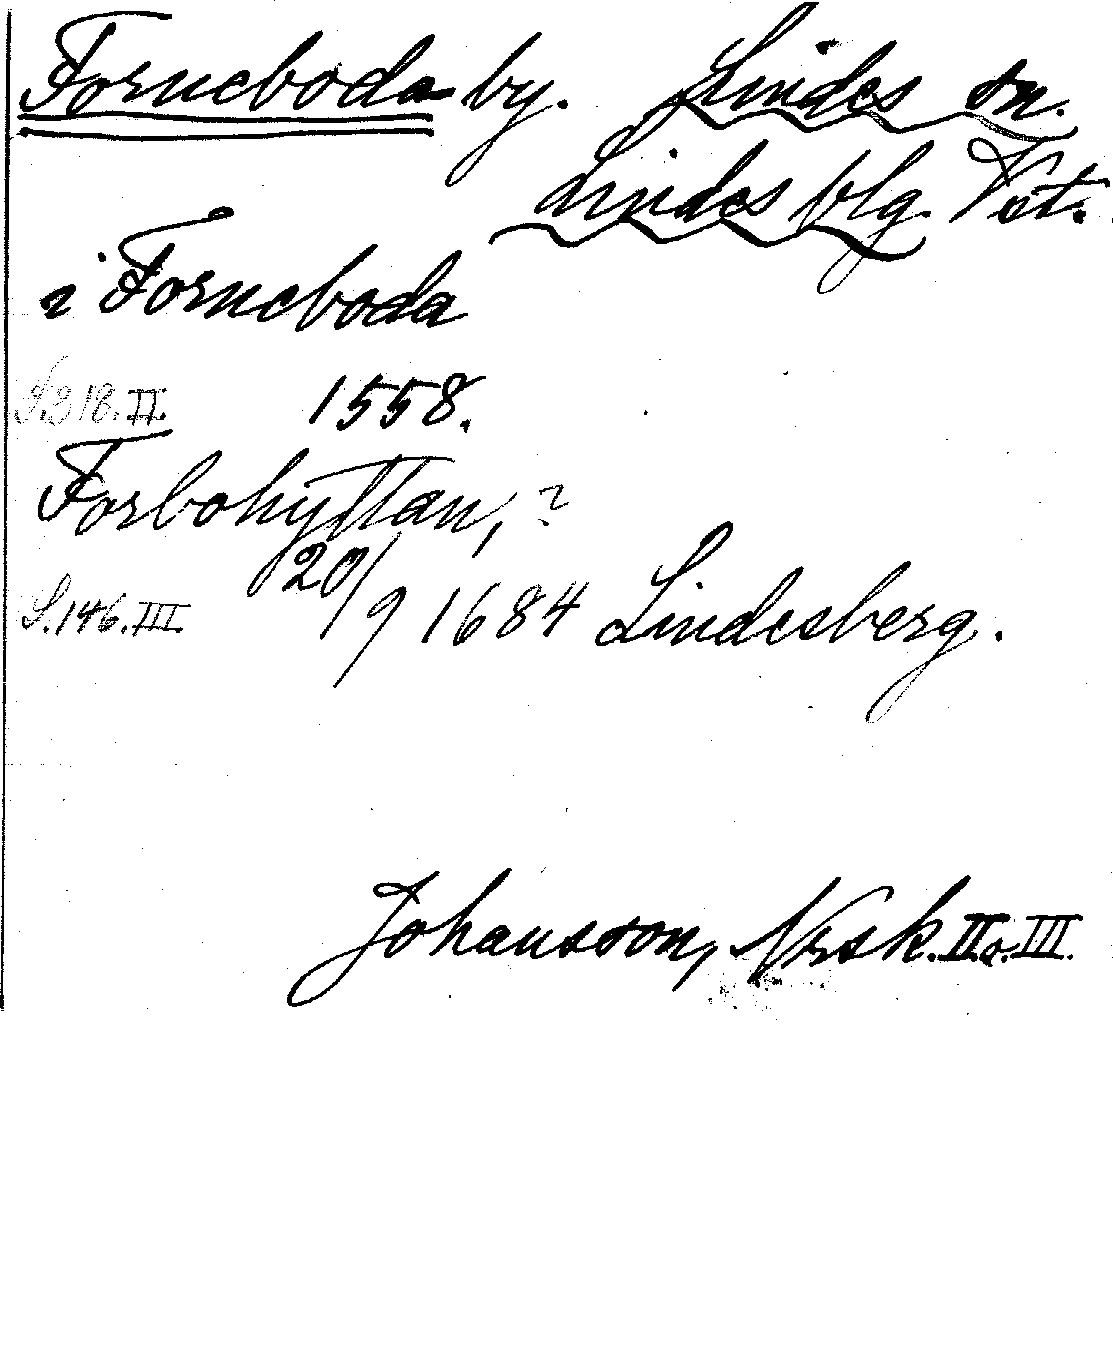 Forneboda by. Lindes sn.
Lindes blg. Vst.
i Forneboda
S. 318. II. 1558.
Forbohyttan, ?
S. 146. III. 20/9 1684 Lindesberg.
Johansson, Nrsk. II o. III.